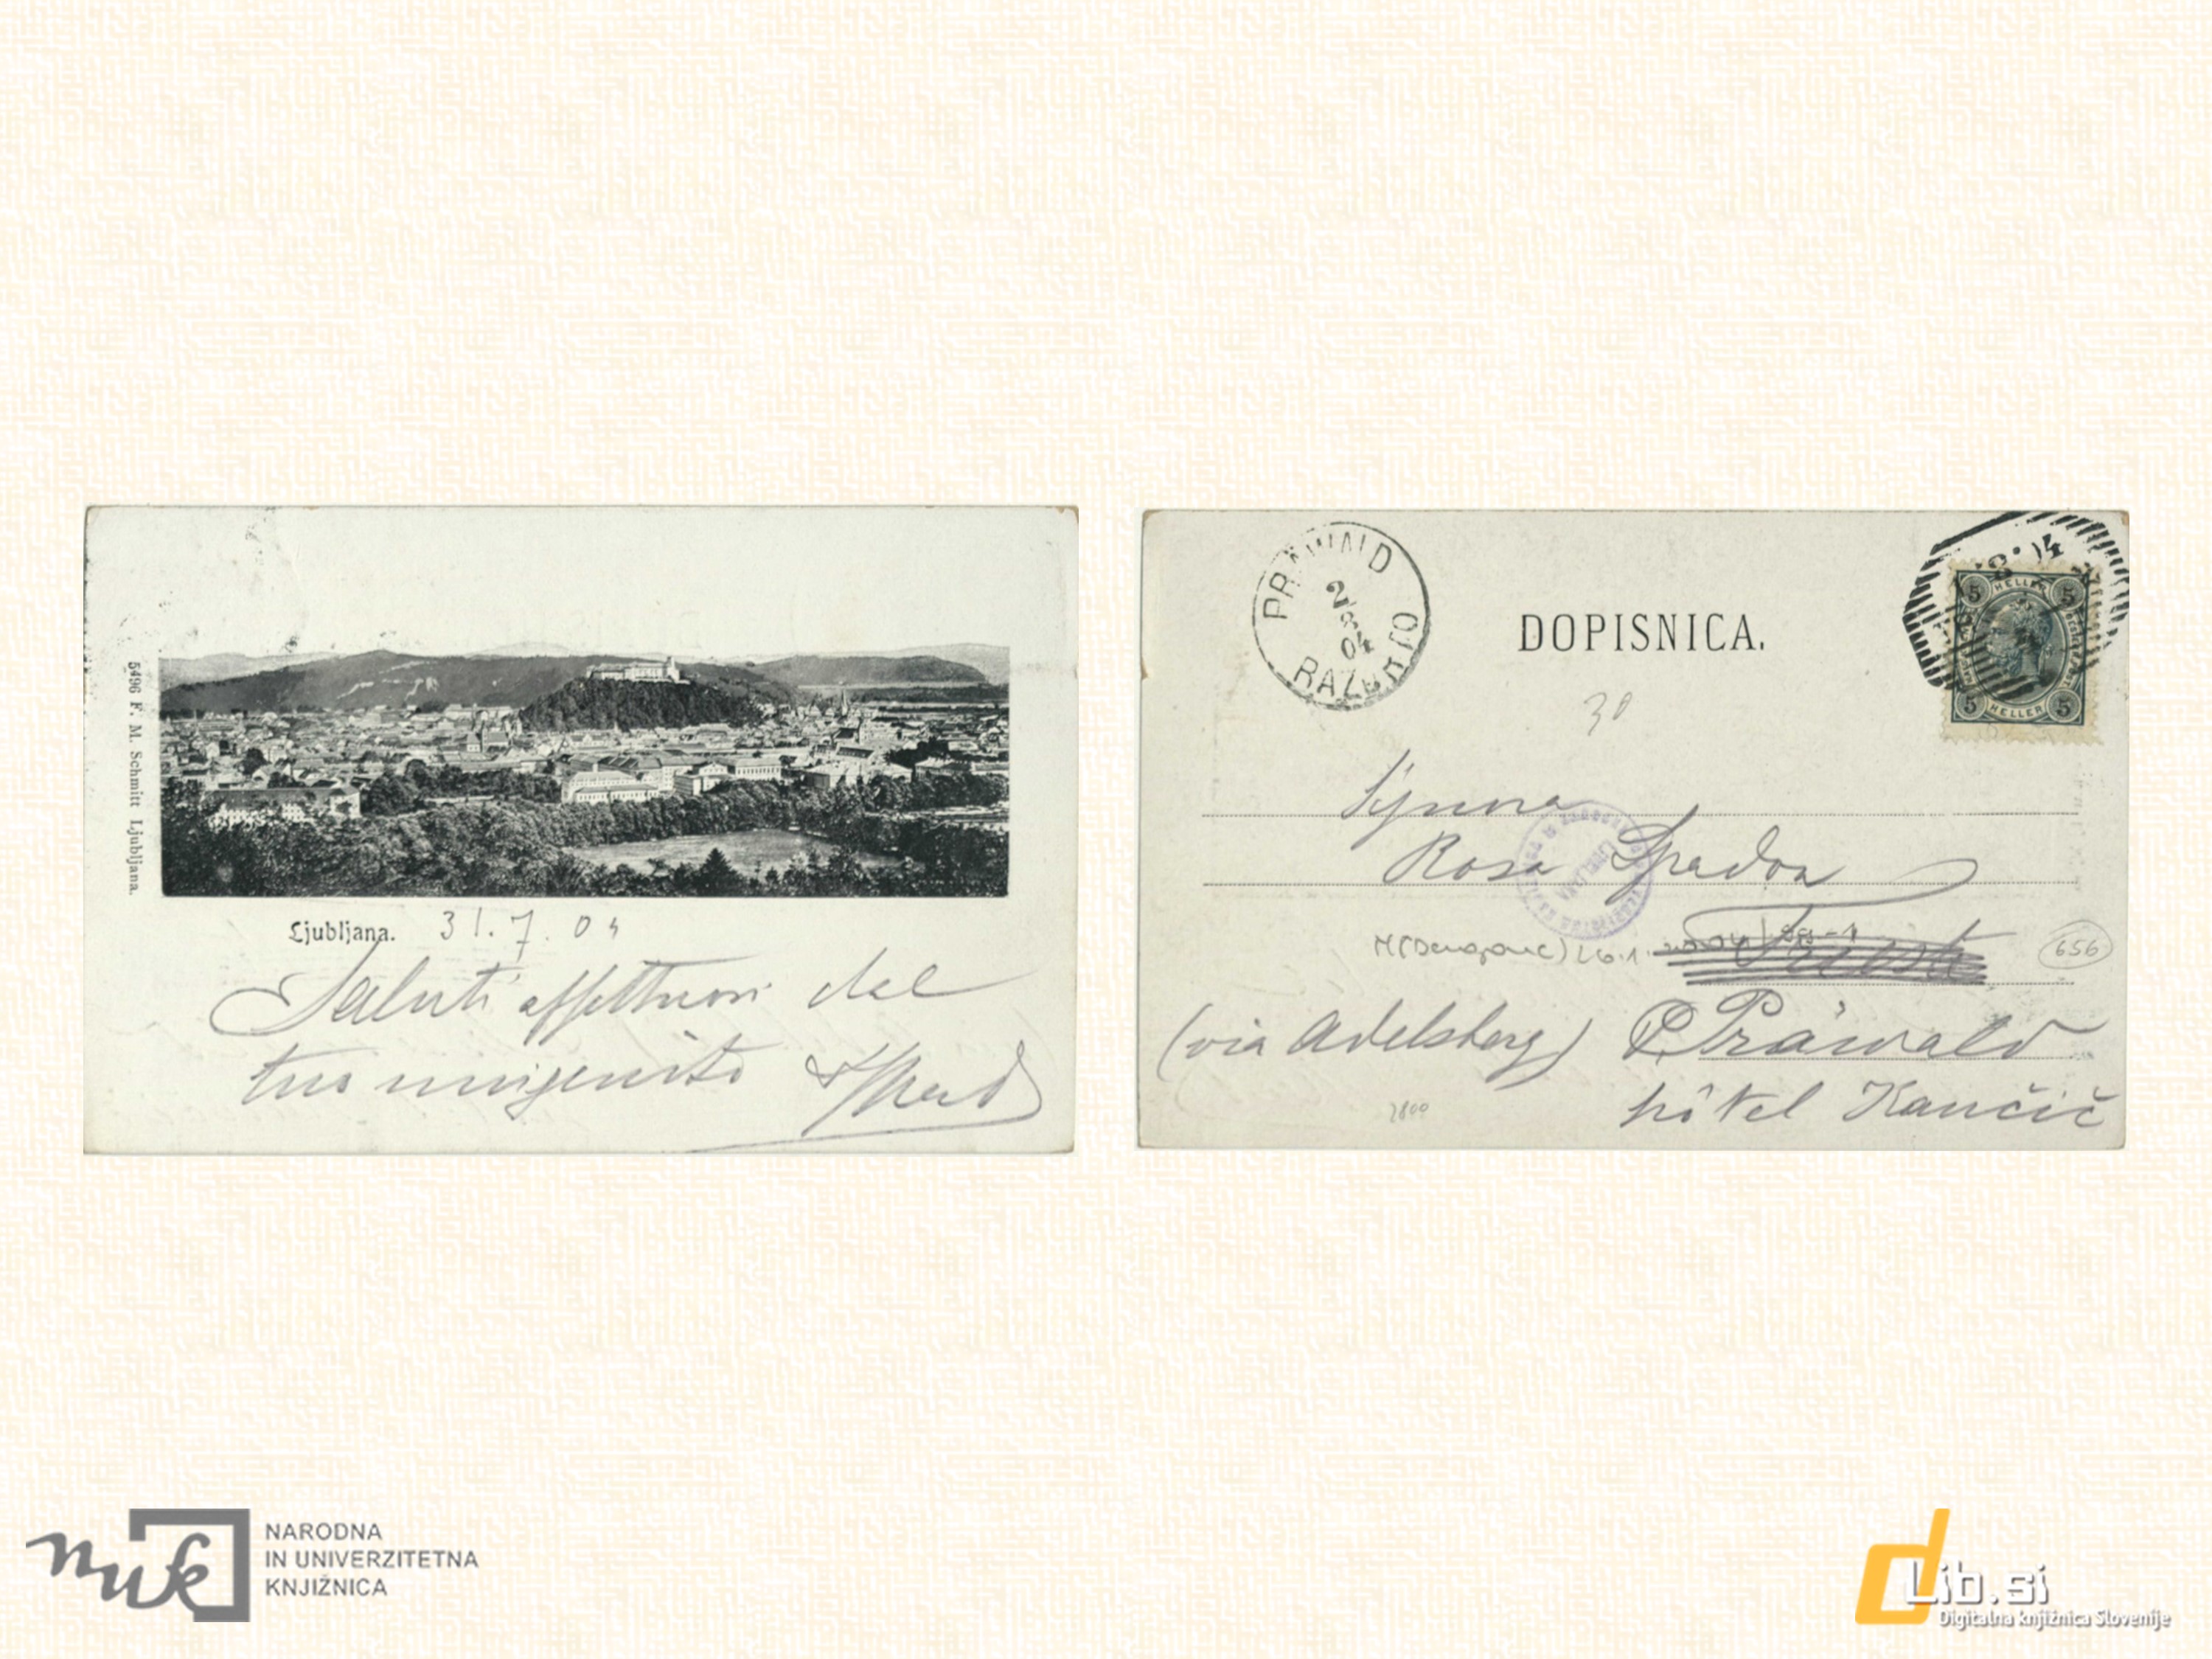 5496 F. M. Schmitt Ljubljana.
Ljubljana. 31. 7. 04
Saluti affettuosi dal
tuo unigenito
PRÄWALD
2
8
04
RAZDRTO
DOPISNICA.
8. 04
5 HELLER 5
5 HELLER 5
30
Signora
Rosa Spadon
LJUBLJANA
Trieste
656
(via Adelsberg) Präwald
hôtel Kančič
2800
nuk
NARODNA
IN UNIVERZITETNA
KNJIŽNICA
dLib.si
Digitalna knjižnica Slovenije